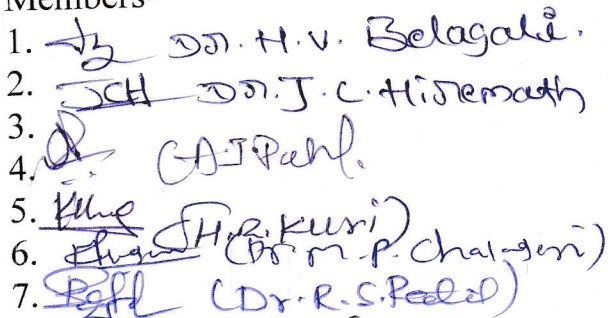 Members
1. Dr. H. V. Belagali.
2. JCH Dr. J. C. Hiremath
3.
4. (A J Patil.
5. (H.R. Kusi)
6. (Dr. M. P. Chalageri)
7. (Dr. R. S. Patil)